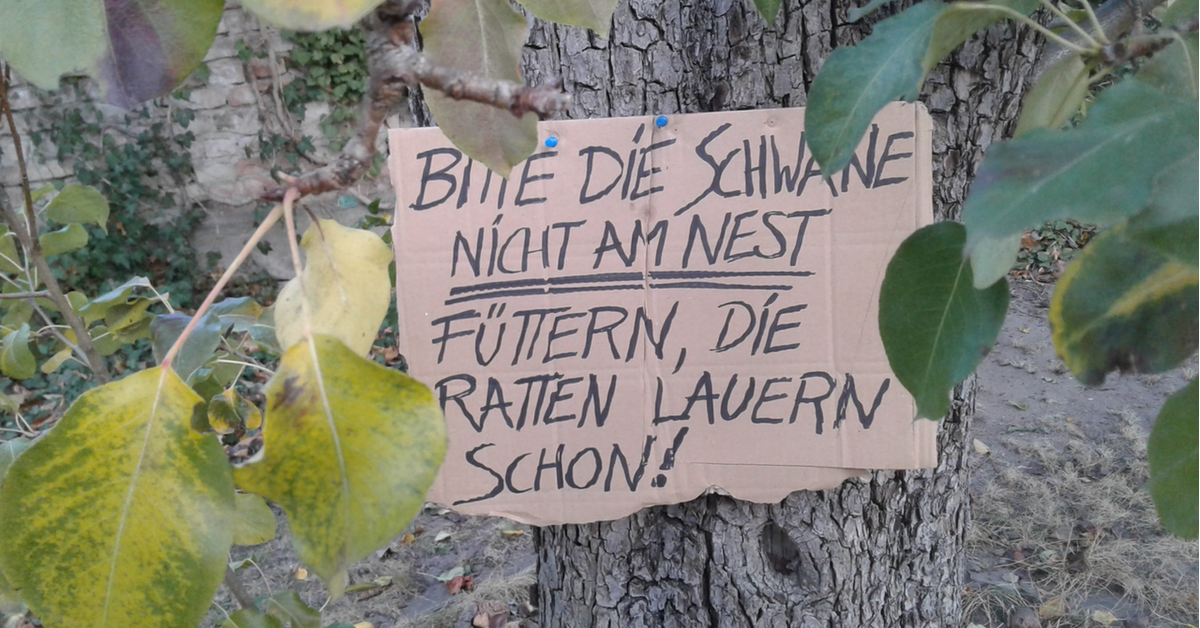 BITTE DIE SCHWANE
NICHT AM NEST
FÜTTERN, DIE
RATTEN LAUERN
SCHON!